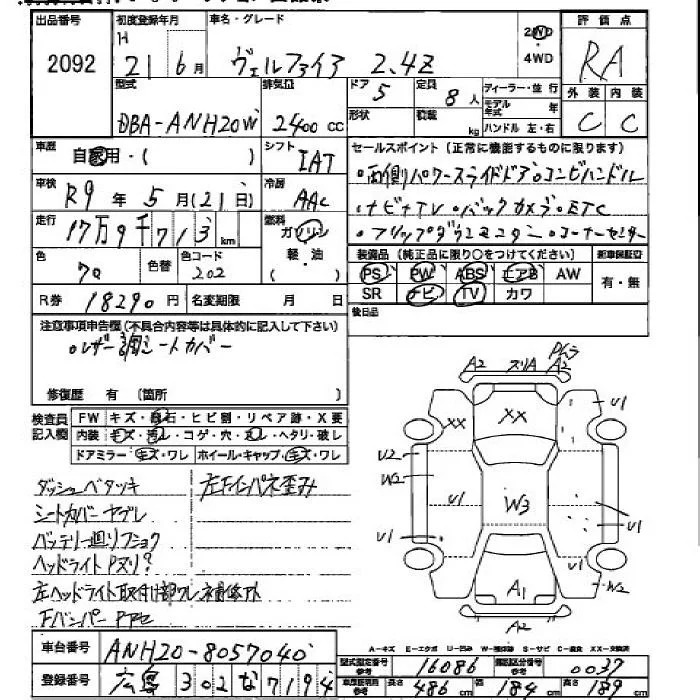 出品番号 初度登録年月 車名・グレード 評価点
2092 H 21 6月 ヴェルファイア 2.4Z 2WD ・4WD RA
型式 排気量 ドア 5 定員 8人 ディーラー・並行 外装 内装
DBA-ANH20W 2400 cc 形状 積載 kg モデル年式 年 ハンドル 左・右 C C
車歴 自家用・( ) シフト IAT セールスポイント (正常に機能するものに限ります)
車検 R9年 5月(21日) 冷房 AAC ・両側パワースライドドア・コンビハンドル
・ナビ+TV・バックカメラ・ETC
走行 17万9千713km 燃料 ガソリン 軽・油 ・フリップダウンモニター・コーナーセンサー
色 70 色替 色コード 202 装備品 (純正品に限り○をつけてください) 新車保証書
PS PW ABS エアB AW 有・無
R券 18290円 名変期限 月 日 SR ナビ TV カワ
後日品
注意事項申告欄(不具合内容等は具体的に記入して下さい)
・レザー調シートカバー
修復歴 有 (箇所 )
検査員記入欄 FW キズ・飛石・ヒビ割・リペア跡・X要
内装 キズ・汚レ・コゲ・穴・スレ・ヘタリ・破レ
ドアミラー キズ・ワレ ホイール・キャップ キズ・ワレ
ダッシュベタツキ 左フインパネ歪み
シートカバーヤブレ
バッテリー廻リフショク
ヘッドライトPズリ?
左ヘッドライト取付部ワレ
Fバンパー
A2 ズリA A2
XX XX U1
U2 W2 U1 W3 U1
U1 U1
A1 W2
A2
A-キズ E-エクボ U-凹ミ W-補修跡 S-サビ C-腐食 XX-交換済
車台番号 ANH20-8057040
型式指定番号参考 16086 類別区分番号参考 0037
登録番号 広島 302 な 7194
車庫証明資料参考 長さ 486cm 幅 184cm 高さ 189cm